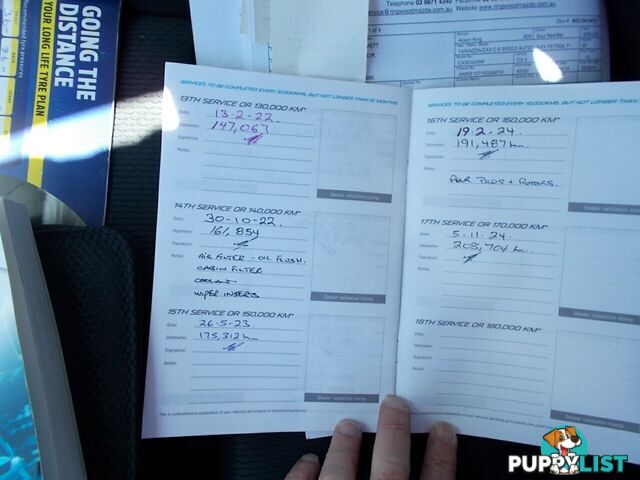 GOING THE
DISTANCE
YOUR LONG LIFE TYRE PLAN
Telephone 03 9871 4340
Website www.ringwoodmazda.com.au
SERVICES TO BE COMPLETED EVERY 10,000KMS, BUT NOT LONGER THAN 12 MONTHS
13TH SERVICE OR 130,000 KM*
Date: 13-2-22
Odometer: 147,067
Signature:
Notes:
Dealer validation stamp
14TH SERVICE OR 140,000 KM*
Date: 30-10-22
Odometer: 161,854
Signature:
Notes: AIR FILTER - OIL FLUSH.
CABIN FILTER
COOLANT
WIPER INSERTS
Dealer validation stamp
15TH SERVICE OR 150,000 KM*
Date: 26-5-23.
Odometer: 175,312 km
Signature:
Notes:
Dealer validation stamp
16TH SERVICE OR 160,000 KM*
Date: 19-2-24.
Odometer: 191,487 km
Signature:
Notes:
PADS + ROTORS.
Dealer validation stamp
17TH SERVICE OR 170,000 KM*
Date: 5-11-24.
Odometer: 208,704 km
Signature:
Notes:
Dealer validation stamp
18TH SERVICE OR 180,000 KM*
Date:
Odometer:
Signature:
Notes:
PUPPYLIST